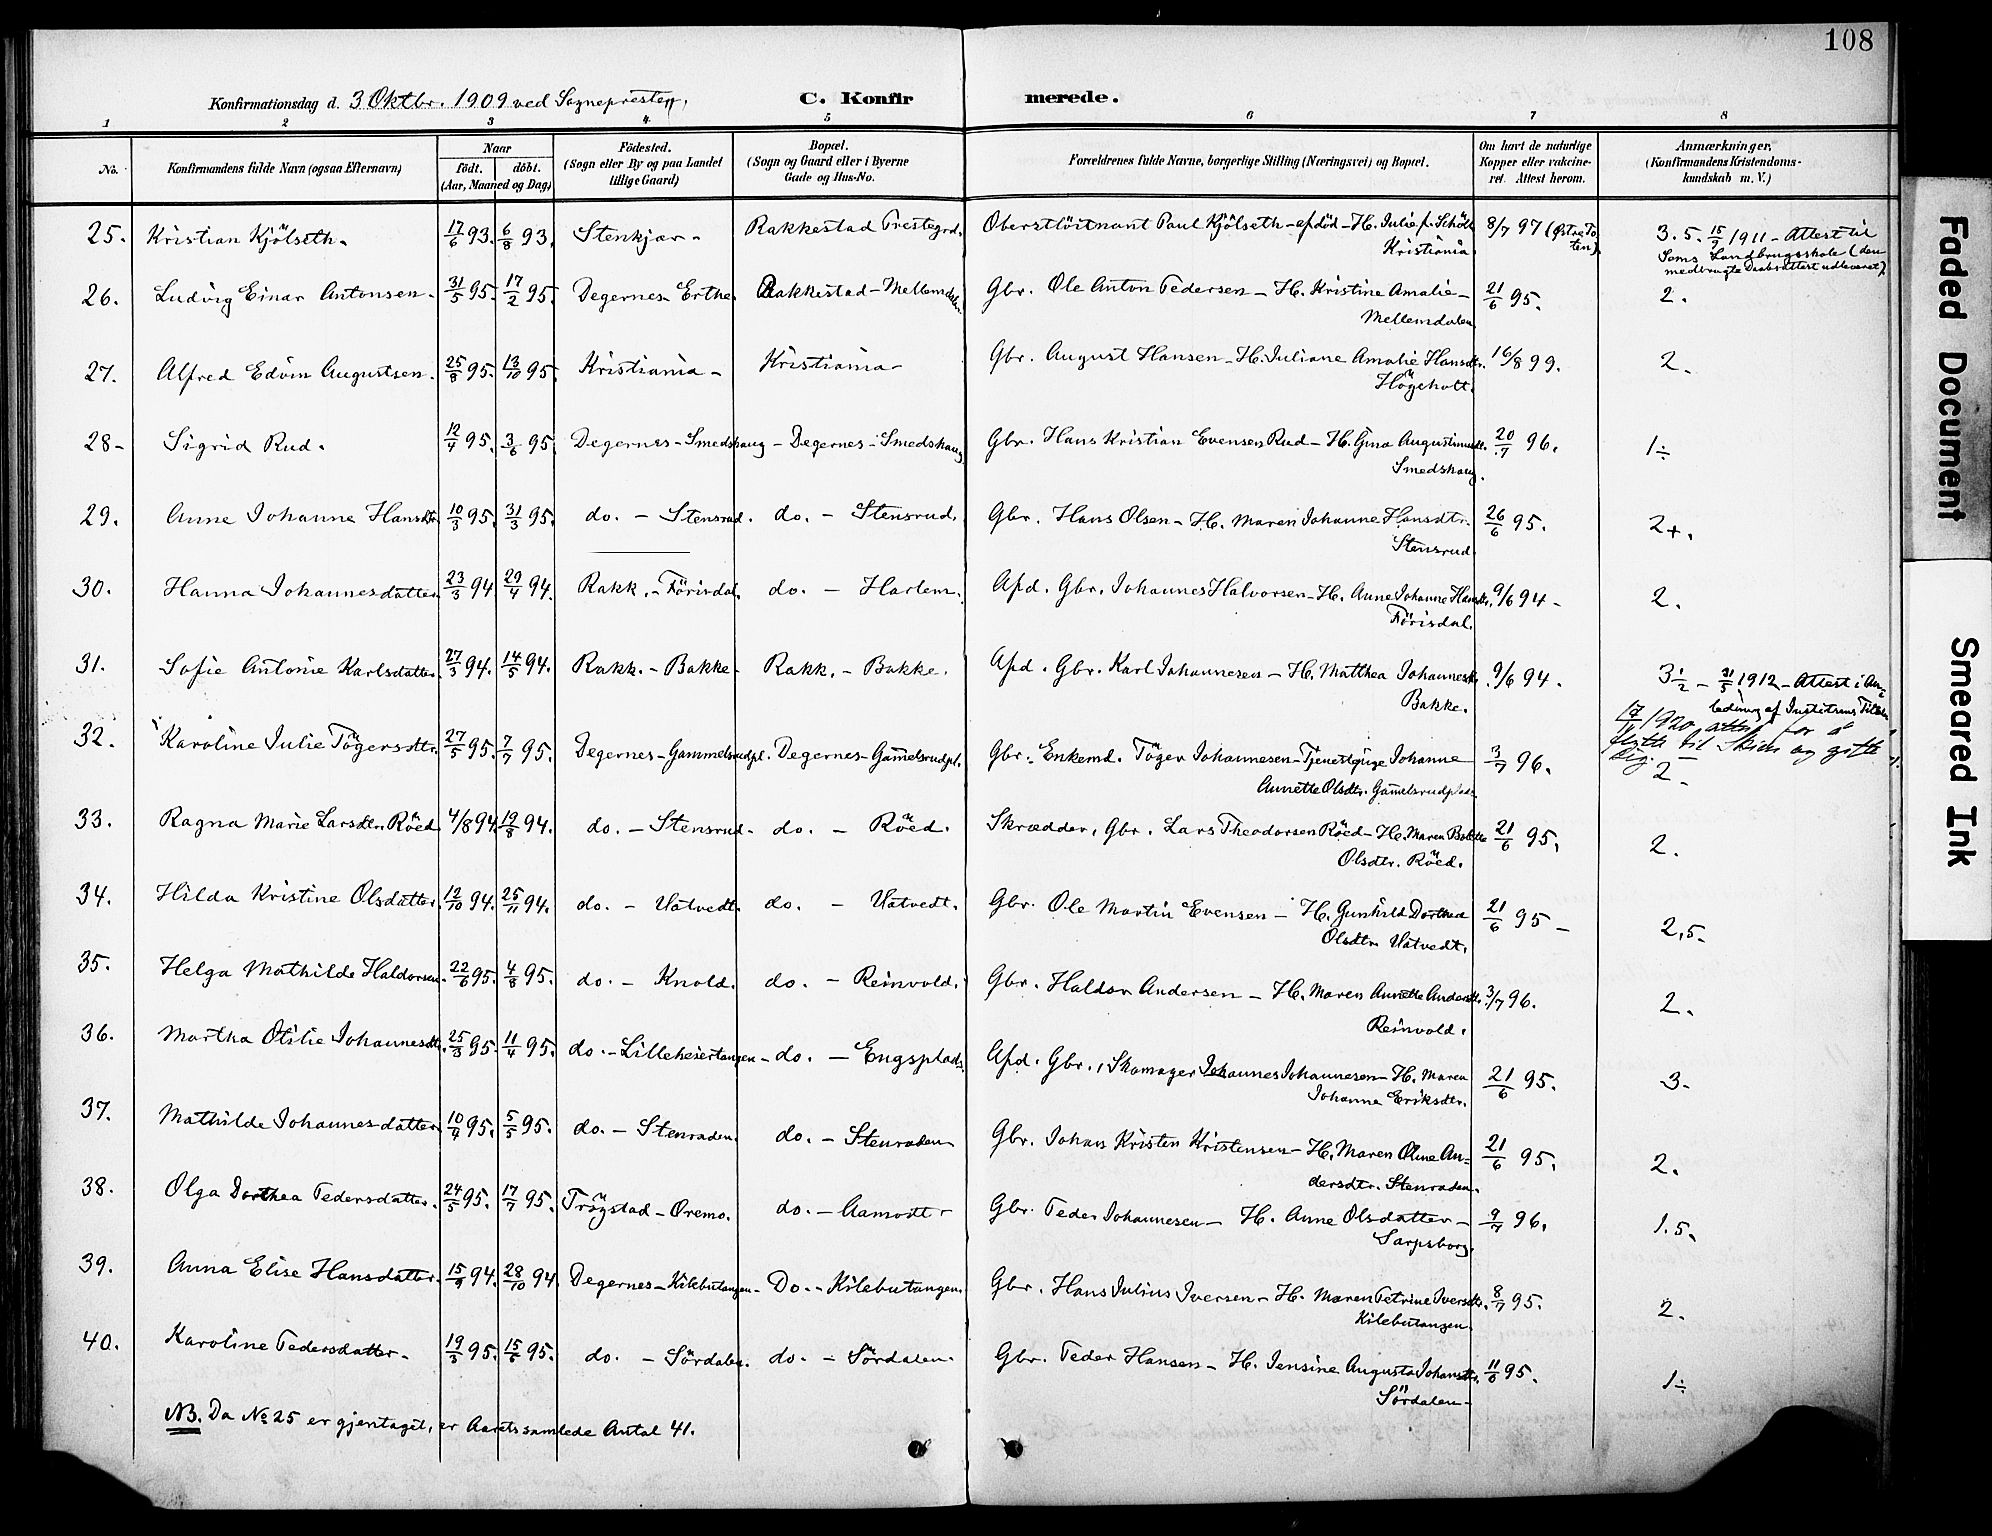 108
Konfirmationsdag d. 3 Oktbr. 1909 ved Sognepresten,
C. Konfirmerede.
1 2 3 4 5 6 7 8
No. Konfirmandens fulde Navn (ogsaa Efternavn) Naar født. døbt. (Aar, Maaned og Dag) Fødested. (Sogn eller By og paa Landet tillige Gaard) Bopæl. (Sogn og Gaard eller i Byerne Gade og Hus-No. Forældrenes fulde Navne, borgerlige Stilling (Næringsvei) og Bopæl. Om havt de naturlige Kopper eller vakcineret. Attest herom. Anmærkninger. (Konfirmandens Kristendomskundskab m. V.)
25. Kristian Kjölseth. 17/6 93. 6/8 93. Stenkjær. Rakkestad Prestegrd. Oberstlöitnant Paul Kjölseth - afdöd - H. Julie f. Kristiania. 8/7 97 (Østre Toten) 3.5. 15/9 1911 - Attest til Sems Landbrugsskole (den medbragte Daabsattest udleveret).
26. Ludvig Einar Antonsen. 31/5 95. 17/2 95. Degernes - Erthe. Rakkestad - Mellemdalen Gbr. Ole Anton Pedersen - H. Kristine Amalie - Mellemdalen 21/6 95. 2.
27. Alfred Edvin Augustsen. 25/8 95. 13/10 95. Kristiania - Kristiania - Gbr. August Hansen - H. Juliane Amalie Hansdtr. Högeholt. 16/8 99. 2.
28 - Sigrid Rud. 12/4 95. 3/6 95. Degernes - Smedshaug - Degernes - Smedshaug Gbr. Hans Kristian Evensen Rud - H. Gina Smedshaug. 20/7 96. 1÷
29. Anne Johanne Hansdtr. 10/3 95. 31/3 95. do. - Stensrud. do. - Stensrud. Gbr. Hans Olsen - H. Maren Johanne Hansdtr. Stensrud. 26/6 95. 2+.
30. Hanna Johannesdatter 23/3 94 29/4 94. Rakk. - Förisdal. do. - Harlem. Afd. Gbr. Johannes Halvorsen - H. Anne Johanne Hansdtr. Förisdal. 9/6 94 - 2.
31. Sofie Antonie Karlsdatter. 27/3 94. 14/5 94. Rakk. - Bakke. Rakk. - Bakke. Afd. Gbr. Karl Johannesen - H. Matthea Johannesdtr. Bakke. 9/6 94. 3 1/2 - 31/5 1912 - Attest i Anledning af
32. Karoline Julie Tögersdtr. 27/5 95. 7/7 95. Degernes - Gammelsrudpl. Degernes - Gam̄elsrudpl. Gbr. Enkemd. Töger Johannesen - Tjenestepige Johanne Annette Olsdtr. Gam̄elsrudplads 3/7 96. 17/4 1920 attest for å flytte til Skien og gifte sig. 2 -
33. Ragna Marie Larsdtr. Röed 4/8 94 19/8 94. do. - Stensrud - do. - Röed. Skrædder, Gbr. Lars Theodorsen Röed - H. Maren Bolette Olsdtr. Röed. 21/6 95. 2.
34. Hilda Kristine Olsdatter. 12/10 94. 25/11 94. do. - Hatvedt. do. - Hatvedt. Gbr. Ole Martin Evensen - H. Gunhild Dorthea Olsdtr. Hatvedt. 21/6 95 - 2,5.
35. Helga Mathilde Haldorsen. 22/6 95. 4/8 95. do. - Knold. do. - Reinvold. Gbr. Haldor Andersen - H. Maren Annette Andersdtr. Reinvold. 3/7 96. 2.
36. Martha Otilie Johannesdtr. 25/3 95. 11/4 95. do. - Lilleheiertangen - do. - Engsplads. Afd. Gbr., Skomager Johannes Johannesen - H. Maren Johanne Eriksdtr. 21/6 95. 3.
37. Mathilde Johannesdatter 10/4 95. 5/5 95. do. - Stenraden. do. - Stenraden Gbr. Johans Kristen Kristensen - H. Maren Oline Andersdtr. Stenraden. 21/6 95. 2.
38. Olga Dorthea Pedersdatter. 24/5 95. 17/7 95. Trögstad - Oremo. do. - Aamodt - Gbr. Peder Johannesen - H. Anne Olsdatter - Sarpsborg. 9/7 96. 1.5.
39. Anna Elise Hansdatter. 15/9 94. 28/10 94 Degernes - Kilebutangen - Do. - Kilebutangen. Gbr. Hans Julius Iversen - H. Maren Petrine Iversdtr. Kilebutangen. 8/7 95. 2.
40. Karoline Pedersdatter - 19/3 95. 15/6 95. do. - Sördalen. do. - Sördalen. Gbr. Peder Hansen - H. Jensine Augusta Johansdtr. Sördalen - 11/6 95. 1÷
NB. Da No 25 er gjentaget, er Aarets samlede Antal 41.
Faded Document
Smeared Ink